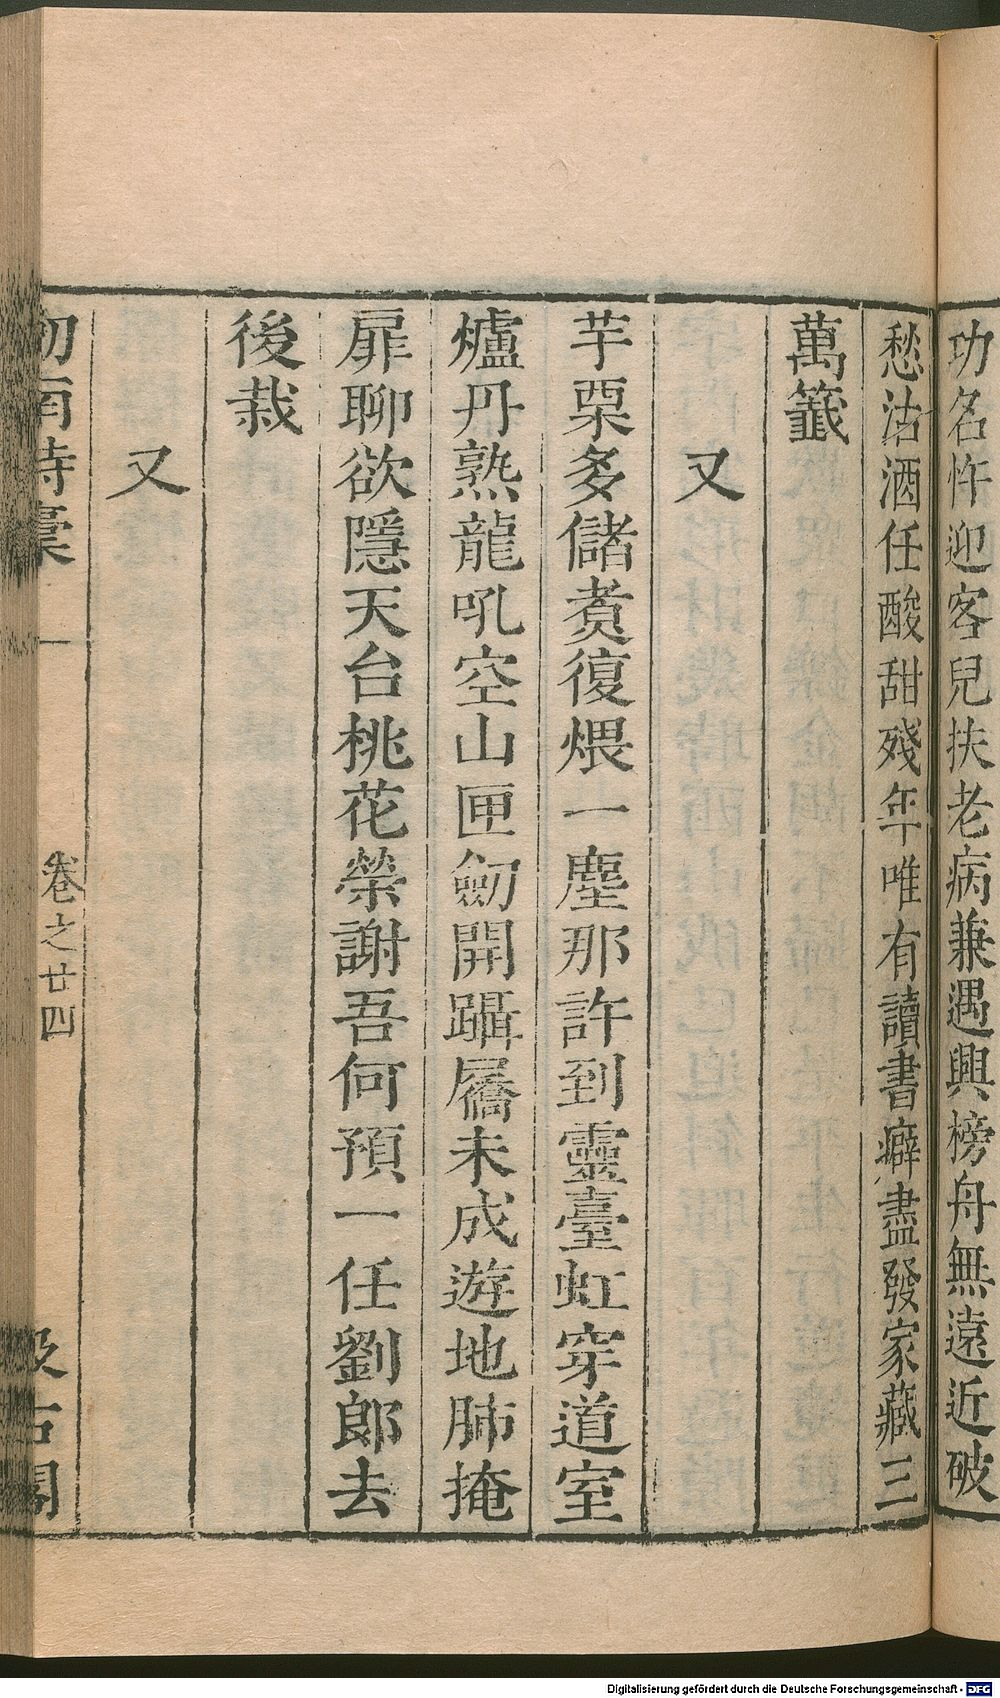 功名忤迎客兒扶老病兼遇興榜舟無遠近破
愁沽酒任酸甜殘年唯有讀書癖盡發家藏三
萬籤
又
芋栗多儲煑復煨一塵那許到靈臺虹穿道室
爐丹熟龍吼空山匣劒開躡屩未成遊地肺掩
扉聊欲隱天台桃花榮謝吾何預一任劉郎去
後栽
又
劒南詩稾 卷之廿四 汲古閣
Digitalisierung gefördert durch die Deutsche Forschungsgemeinschaft - DFG